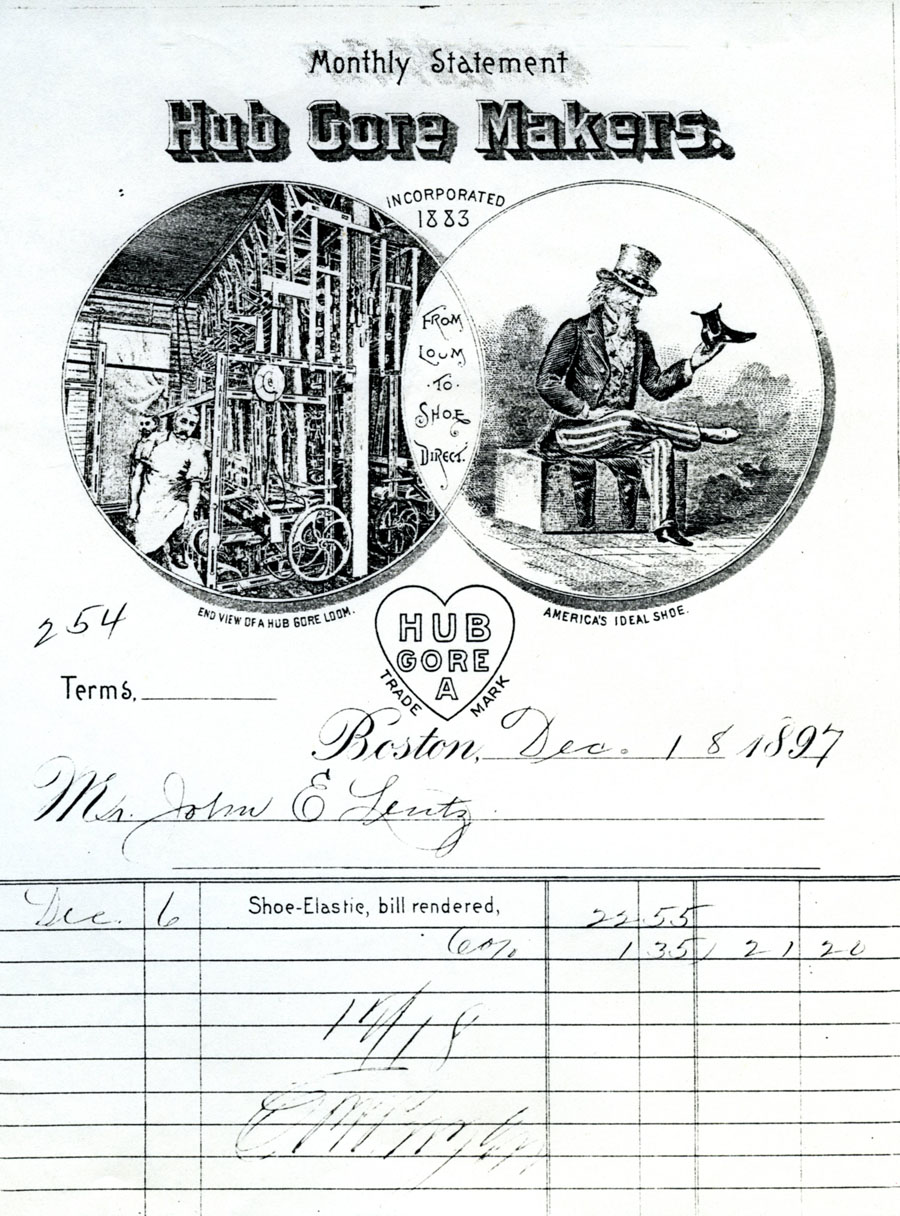 Monthly Statement
Hub Gore Makers.
INCORPORATED
1883
FROM
LOOM
TO
SHOE
DIRECT.
END VIEW OF A HUB GORE LOOM.
AMERICA'S IDEAL SHOE.
254
HUB
GORE
A
TRADE MARK
Terms,
Boston, Dec. 18 1897
Mr. John E Lentz
Dec. 6 Shoe-Elastic, bill rendered, 22 55
6% 1 35 21 20
12/18